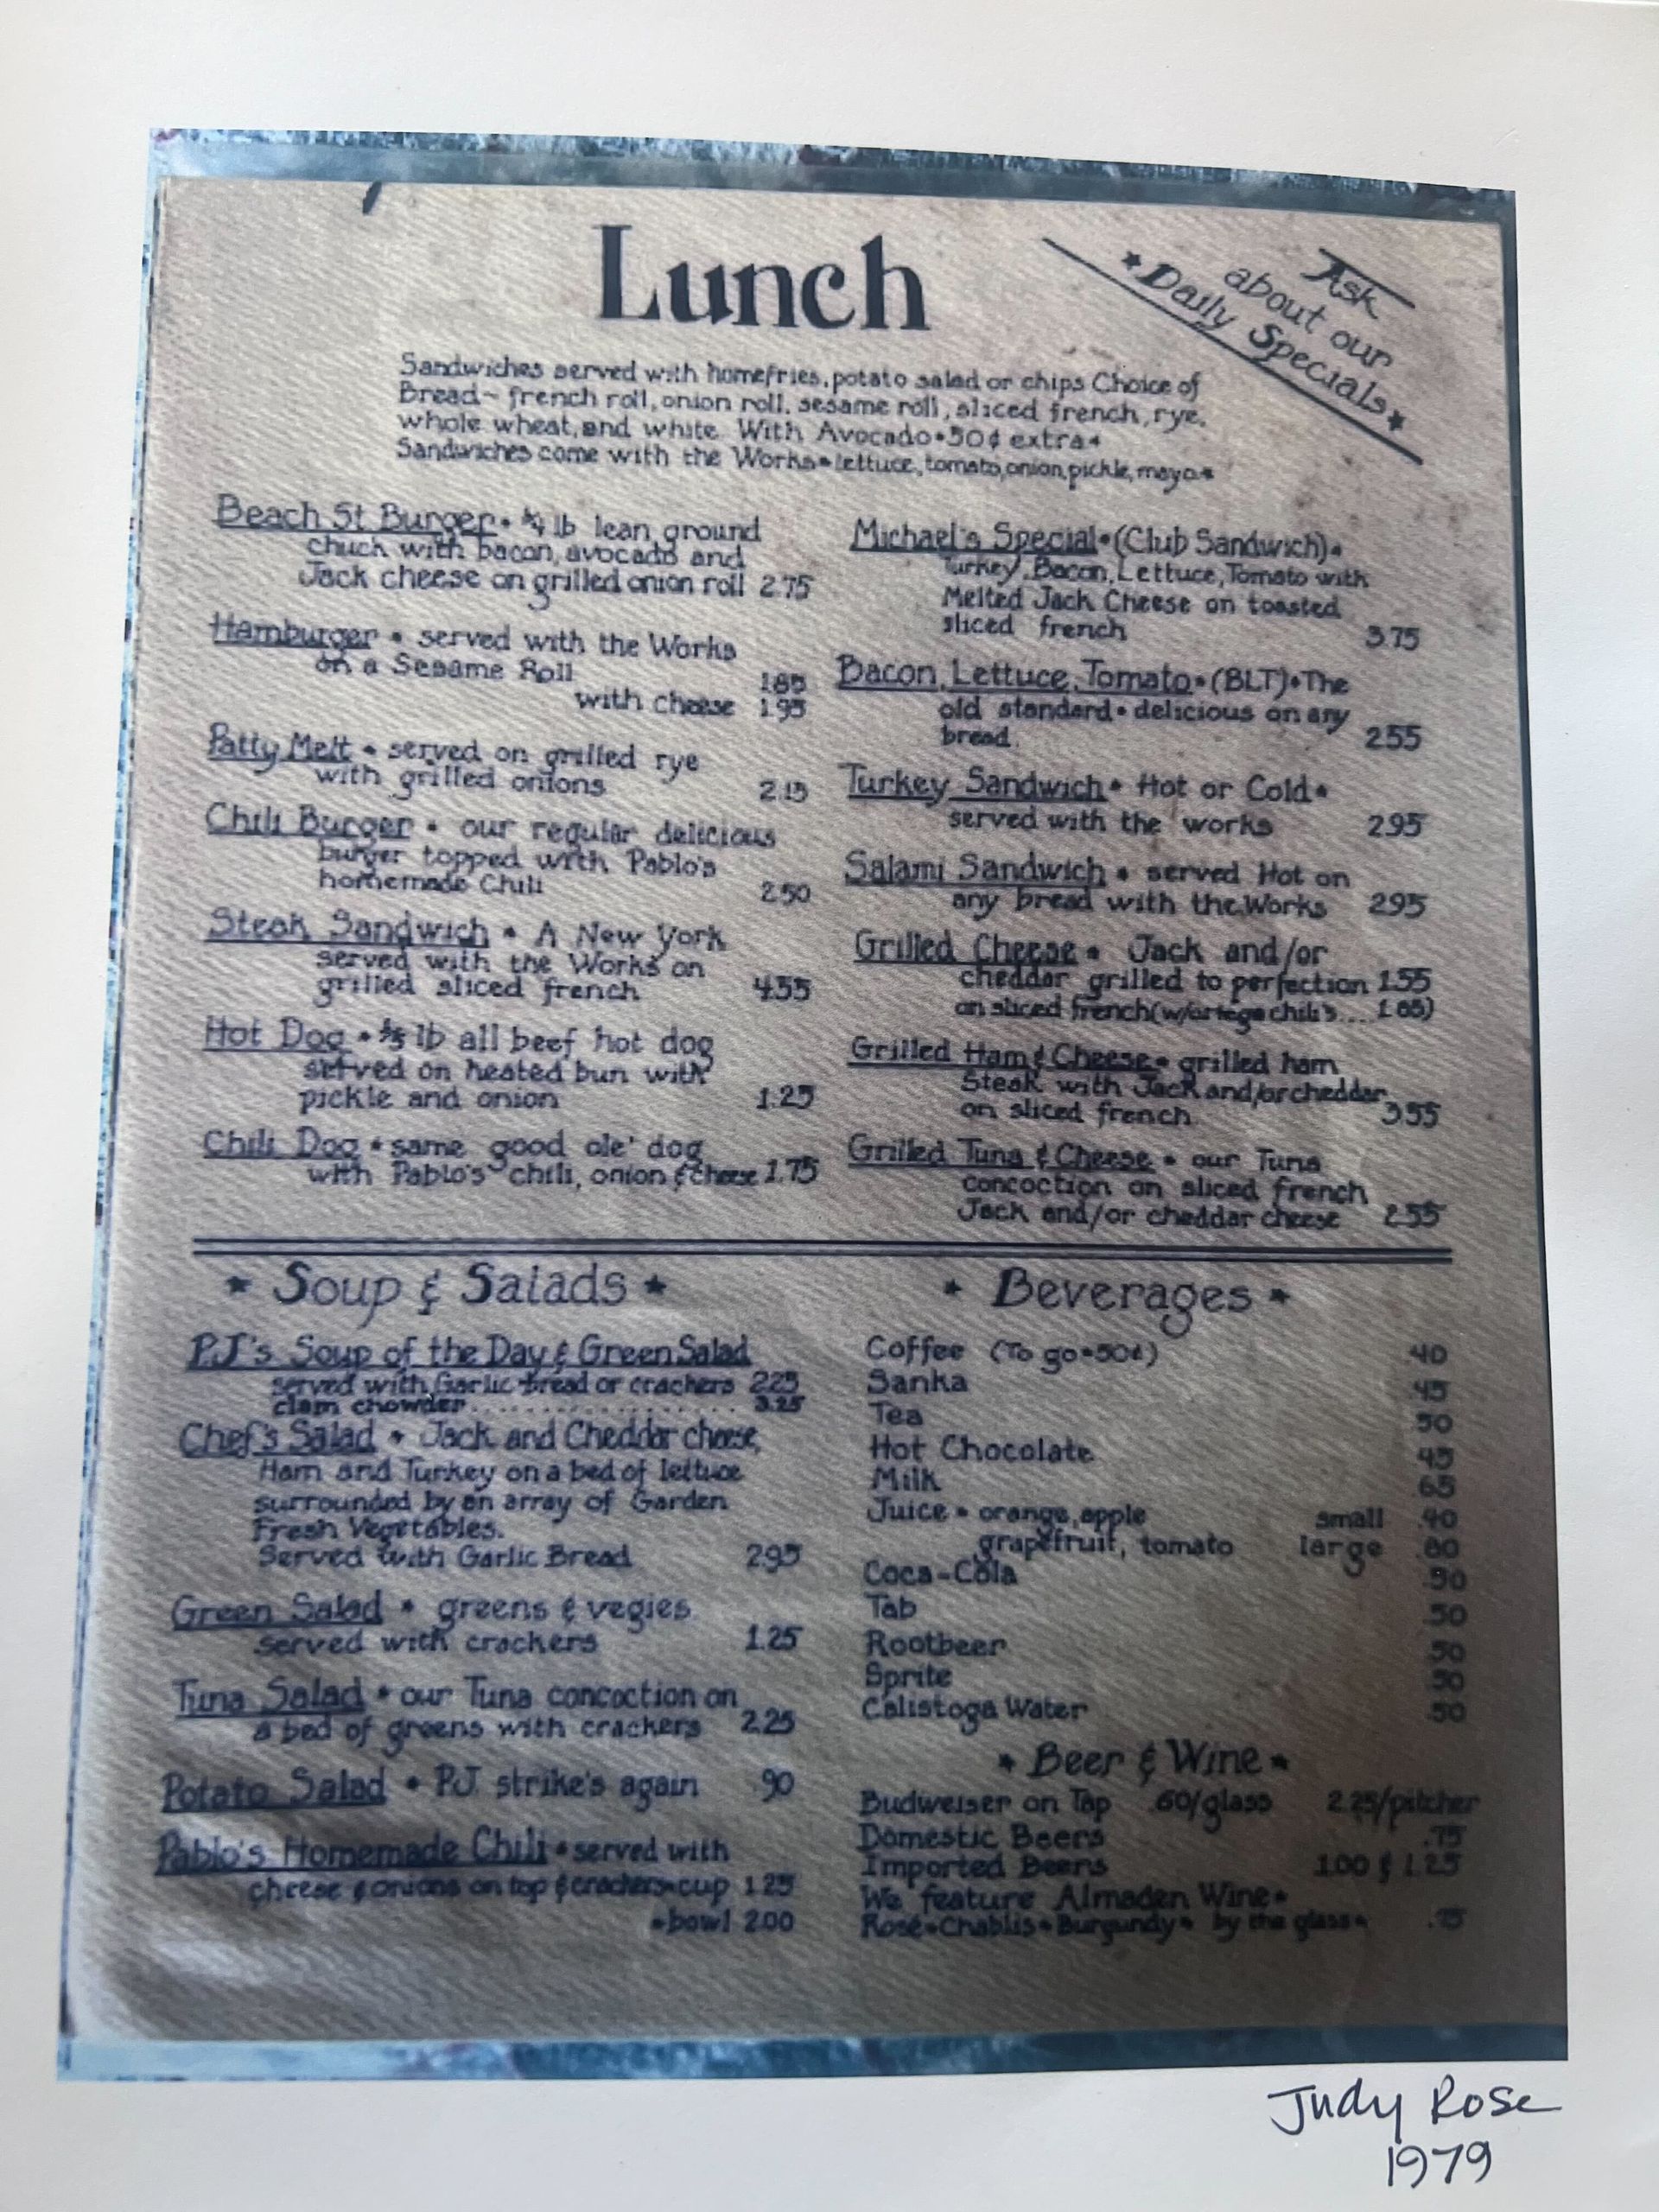 Lunch
Ask
about our
★Daily Specials★
Sandwiches served with homefries, potato salad or chips Choice of
Bread~ french roll, onion roll, sesame roll, sliced french, rye,
whole wheat, and white. With Avocado•50¢ extra•
Sandwiches come with the Works•lettuce, tomato, onion, pickle, mayo•
Beach St Burger• ¼ lb lean ground
chuck with bacon, avocado and
Jack cheese on grilled onion roll 2.75
Hamburger • served with the Works
on a Sesame Roll 1.85
with cheese 1.95
Patty Melt • served on grilled rye
with grilled onions 2.15
Chili Burger • our regular delicious
burger topped with Pablo's
homemade Chili 2.50
Steak Sandwich • A New York
served with the Works on
grilled sliced french 4.55
Hot Dog • lb all beef hot dog
served on heated bun with
pickle and onion 1.25
Chili Dog • same good ole' dog
with Pablo's chili, onion & cheese 1.75
Michael's Special•(Club Sandwich)•
Turkey, Bacon, Lettuce, Tomato with
Melted Jack Cheese on toasted
sliced french 3.75
Bacon, Lettuce, Tomato•(BLT)•The
old standard• delicious on any
bread. 2.55
Turkey Sandwich• Hot or Cold•
served with the works 2.95
Salami Sandwich • served Hot on
any bread with the Works 2.95
Grilled Cheese • Jack and/or
cheddar grilled to perfection 1.55
on sliced french (w/ortega chili's.... 1.85)
Grilled Ham & Cheese• grilled ham
Steak with Jack and/or cheddar
on sliced french. 3.55
Grilled Tuna & Cheese • our Tuna
concoction on sliced french
Jack and/or cheddar cheese 2.55
★ Soup & Salads ★
P.J.'s Soup of the Day & Green Salad
served with Garlic bread or crackers 2.25
clam chowder.................. 3.25
Chef's Salad • Jack and Cheddar cheese,
Ham and Turkey on a bed of lettuce
surrounded by an array of Garden
Fresh Vegetables.
Served with Garlic Bread 2.95
Green Salad • greens & vegies
served with crackers 1.25
Tuna Salad • our Tuna concoction on
a bed of greens with crackers 2.25
Potato Salad • P.J. strike's again .90
Pablo's Homemade Chili • served with
cheese & onions on top & crackers•cup 1.25
•bowl 2.00
★ Beverages ★
Coffee (To go•50¢) .40
Sanka .45
Tea .50
Hot Chocolate .45
Milk .65
Juice • orange, apple small .40
grapefruit, tomato large .80
Coca-Cola .50
Tab .50
Rootbeer .50
Sprite .50
Calistoga Water .50
★ Beer & Wine ★
Budweiser on Tap .60/glass 2.25/pitcher
Domestic Beers .75
Imported Beers 1.00 & 1.25
We feature Almaden Wine•
Rosé•Chablis•Burgundy• by the glass• .75
Judy Rose
1979